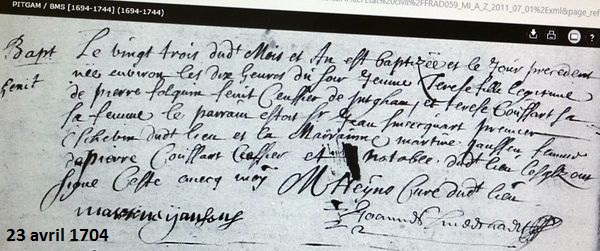 PITGAM / BMS [1694-1744] (1694-1744)
FRAD059_MI_A_Z_2011_07_01%2Exml&page_ref
Bapt Le vingt trois dudt Mois et An est baptizée et le Jour precedent
née environ les dix heures du Jour Jenne Terese fille legitime
de pierre folquin fenit Censier de pitgham, et terese Coussart sa
sa femme le parrain estoit Sr Jean premier
Eschevin dudt lieu et la Marraine martine Janssen femme
a pierre Coussart et notable dudt lieu lesqlz ont
signé Ceste avecq moy M Heyns Curé dudt lieu
martine janssens
Joannes
23 avril 1704